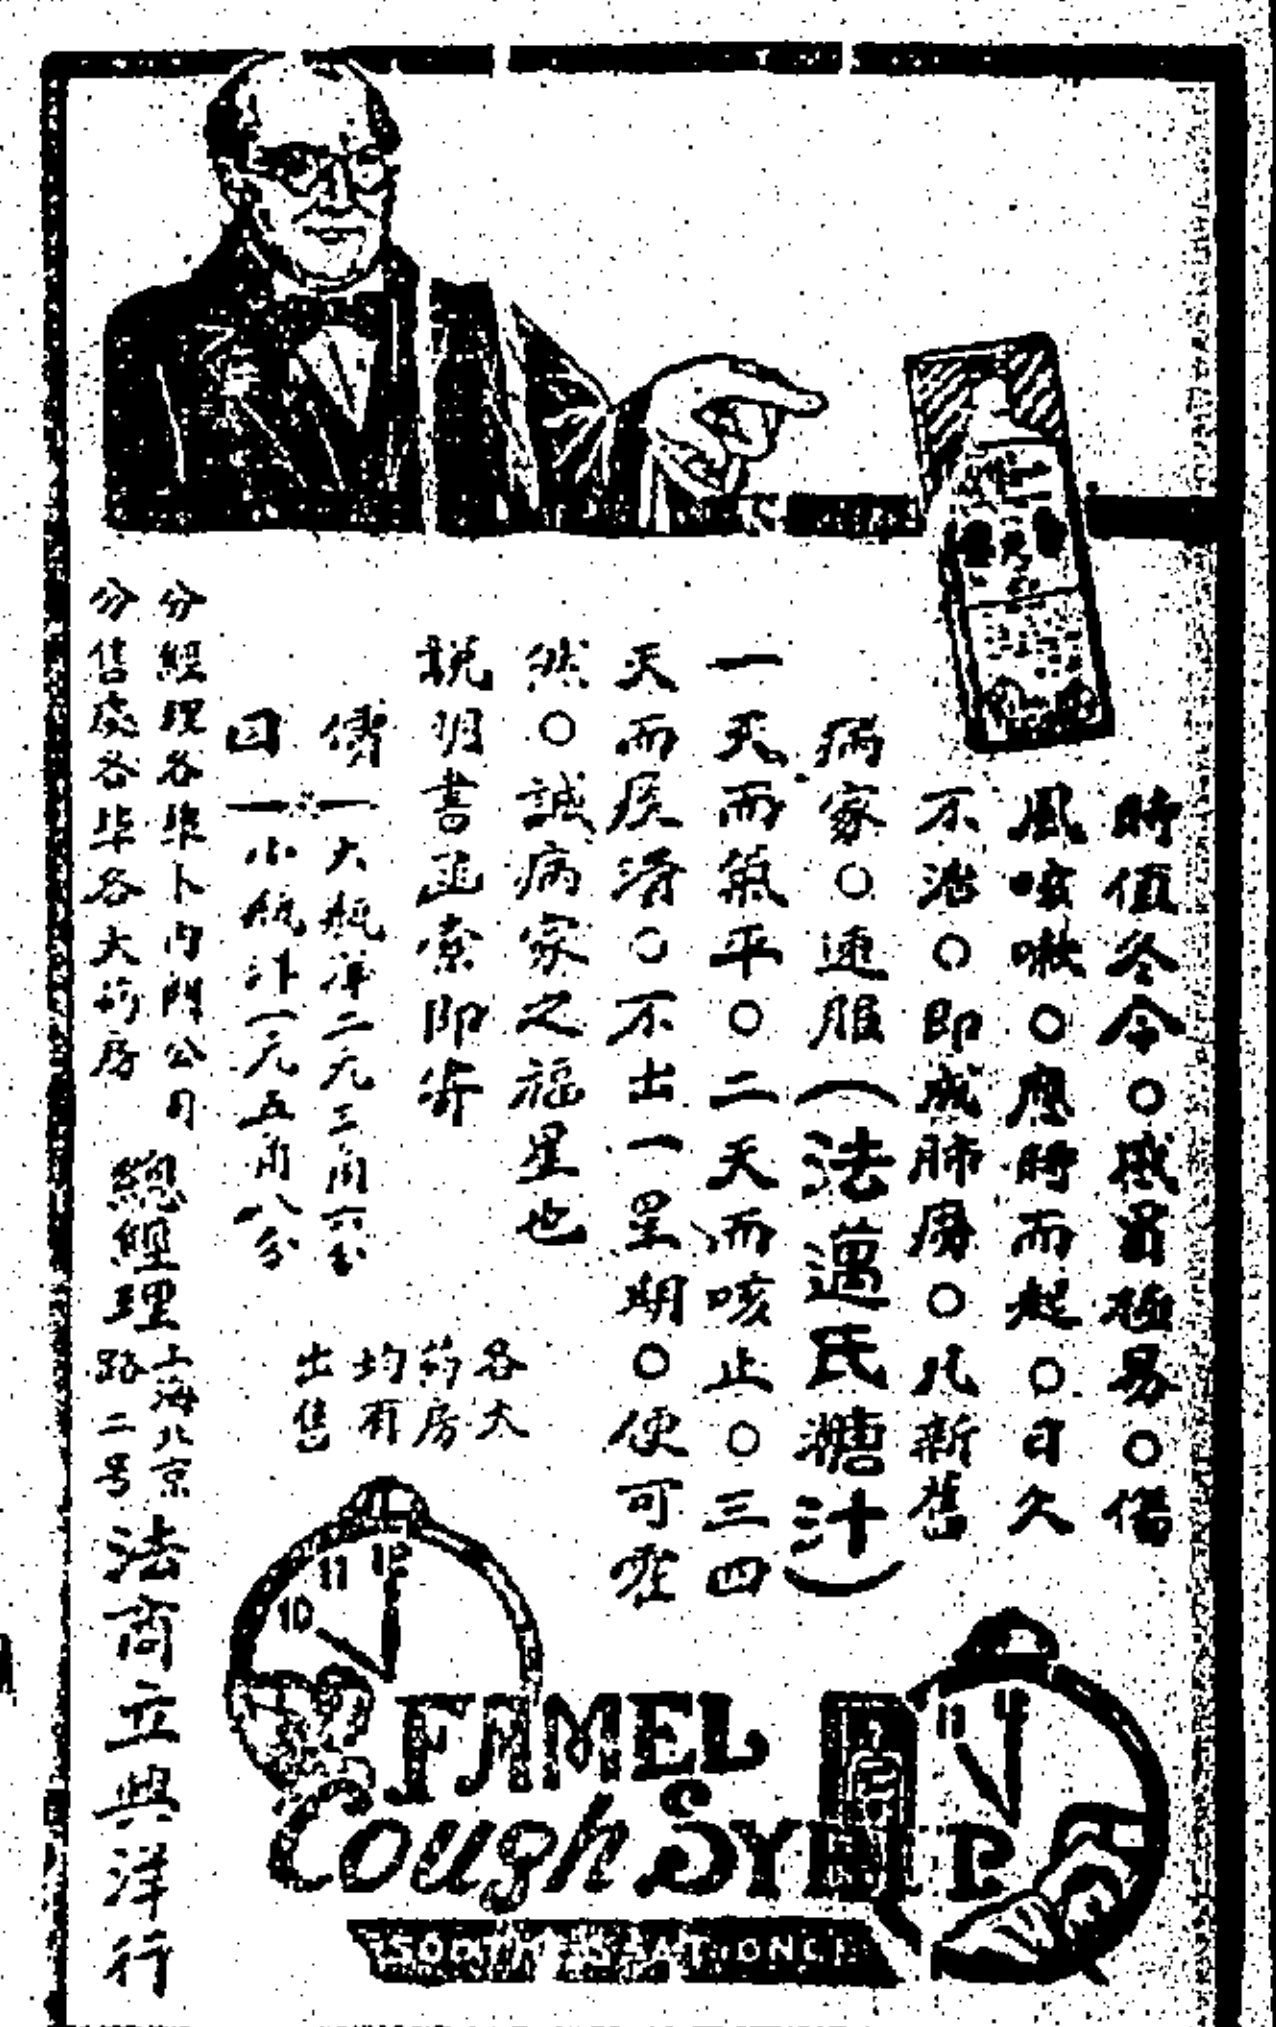 時值冬令○感冒極易○傷
風咳嗽○應時而起○日久
不治○即成肺癆○凡新舊
病家○速服（法邁氏糖汁）
一天而氣平○二天而咳止○三四
天而痰清○不出一星期○便可霍
然○誠病家之福星也
說明書函索即寄
價 大瓶洋二元三角六分
目 小瓶洋一元五角八分
各大
葯房
均有
出售
分經理各埠卜內門公司
分售處各埠各大葯房
總經理 上海北京
路二号
法商立興洋行
11 12
10
FAMEL
Cough SYRUP
SOOTHES AT ONCE
11 12